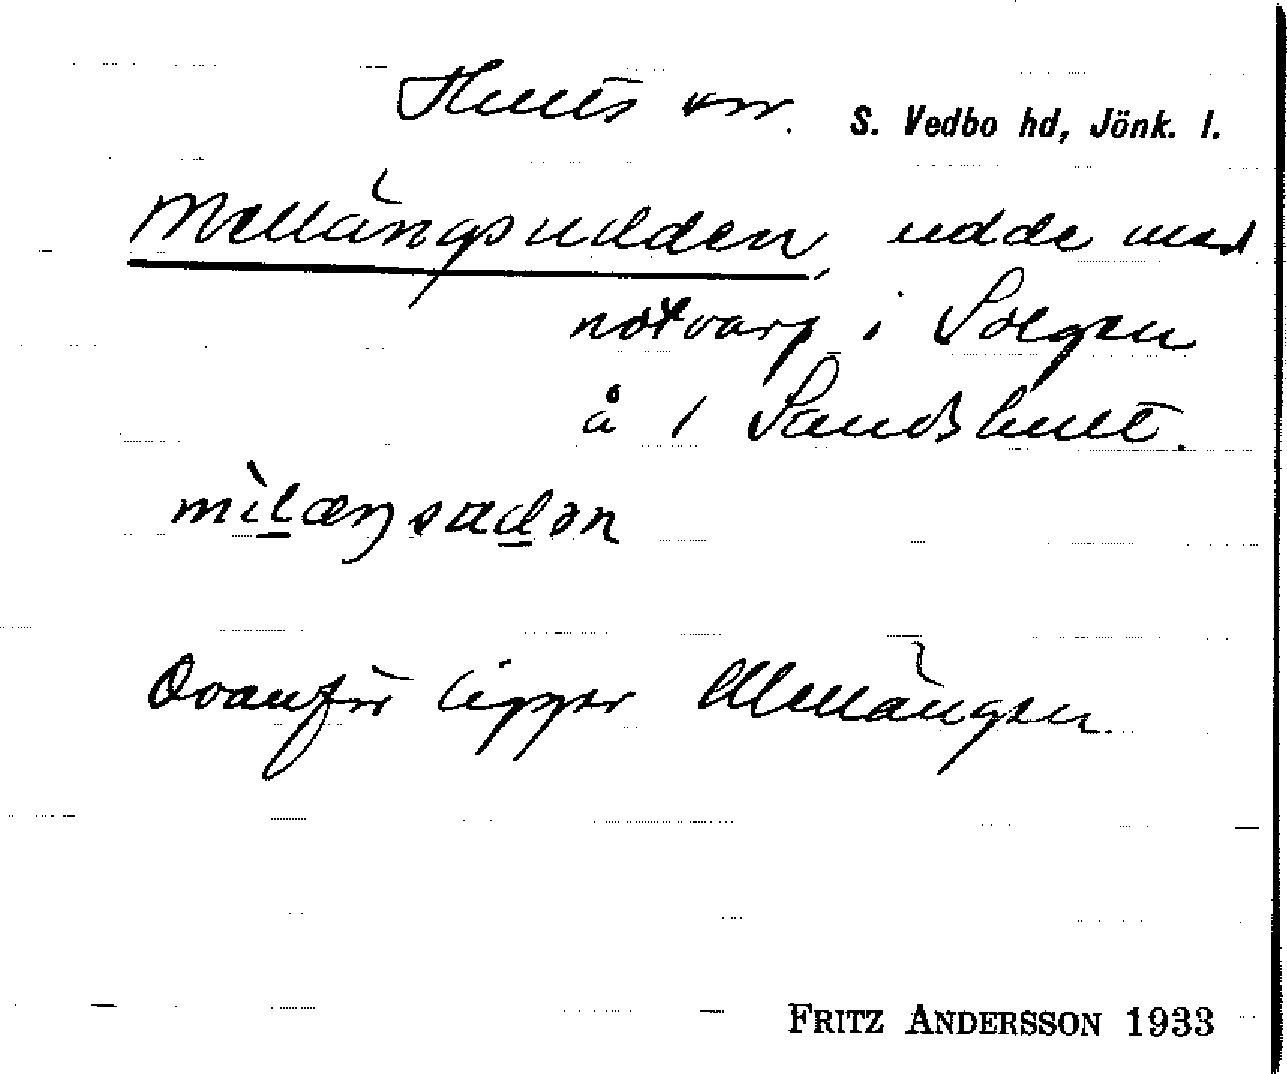 Hults sn. S. Vedbo hd, Jönk. l.
Mellängsudden, udde med
notvarp i Solgen
å 1 Sandshult.
mìlæŋsudən
Ovanför ligger Mellängen.
FRITZ ANDERSSON 1933